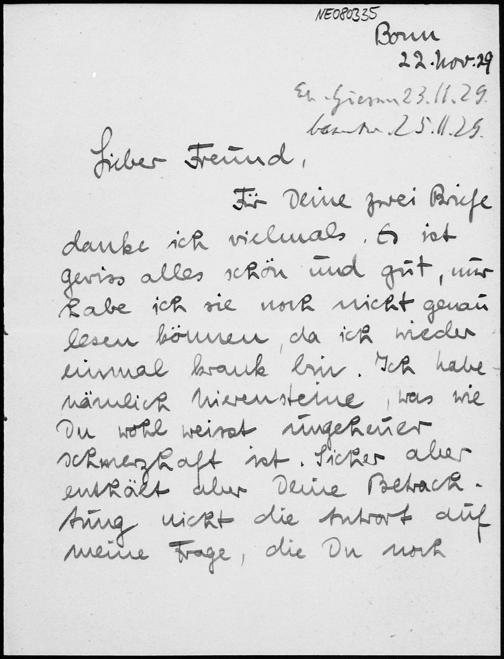 NE080335
Bonn
22. Nov. 29
Er. Giessen 23.11.29.
beantw. 25.11.29.
Lieber Freund,
Für Deine zwei Briefe
danke ich vielmals. Es ist
gewiss alles schön und gut, nur
habe ich sie noch nicht genau
lesen können, da ich wieder
einmal krank bin. Ich habe
nämlich Nierensteine, was wie
Du wohl weisst ungeheuer
schmerzhaft ist. Sicher aber
enthält aber Deine Betrach-
tung nicht die Antwort auf
meine Frage, die Du noch